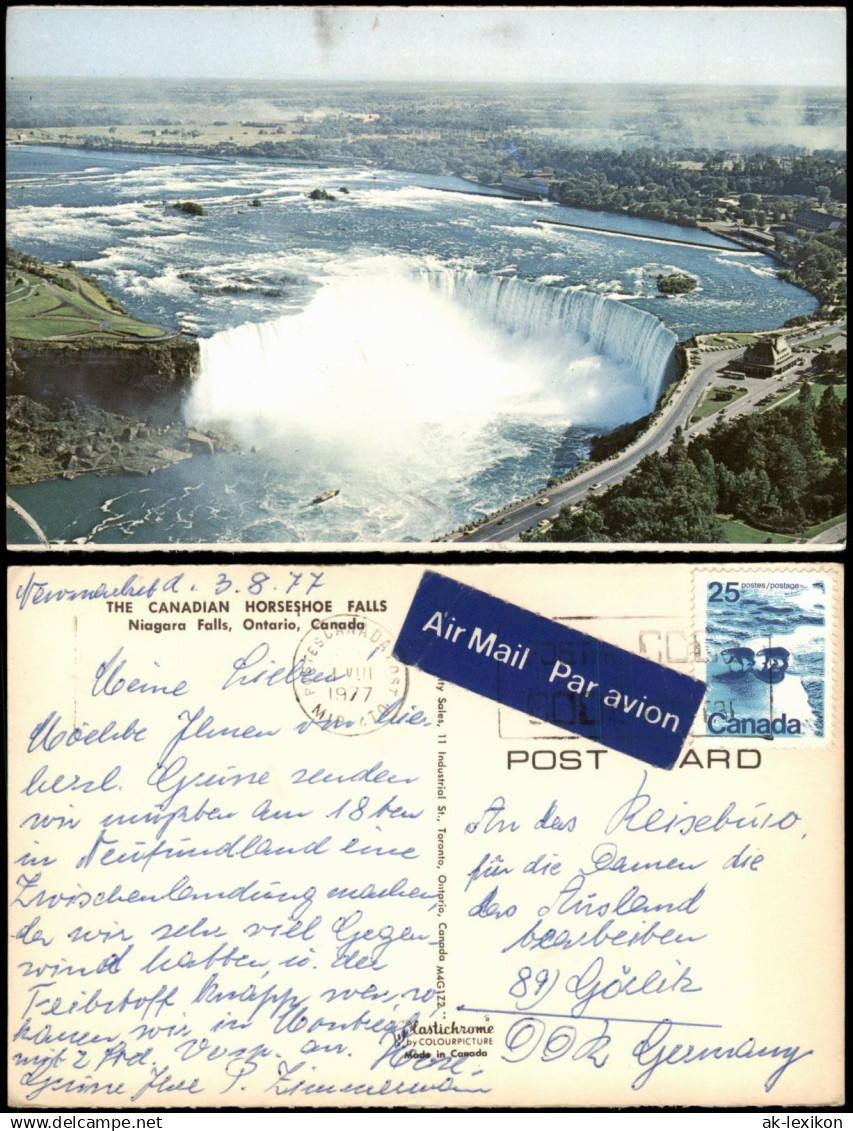 Newmarket d. 3.8.77
THE CANADIAN HORSESHOE FALLS
Niagara Falls, Ontario, Canada
Meine Lieben!
Möchte Ihnen von hier
herzl. Grüße senden
wir mußten am 18ten
in Neufundland eine
Zwischenlandung machen,
da wir sehr viel Gegen-
wind hatten u. der
Treibstoff knapp war, so
kamen wir in Montreal
mit 2 Std. Versp. an. Herzl.
Grüße Ihre P. Zimmermann
POSTES CANADA POST
VIII
1977
Air Mail Par avion
25 postes/postage
Canada
POST CARD
11 Industrial St., Toronto, Ontario, Canada M4G1Z2
An das Reisebüro,
für die Damen die
das Ausland
bearbeiten
89) Görlitz
DDR Germany
Plastichrome
by COLOURPICTURE
Made in Canada
delcampe.net
ak-lexikon